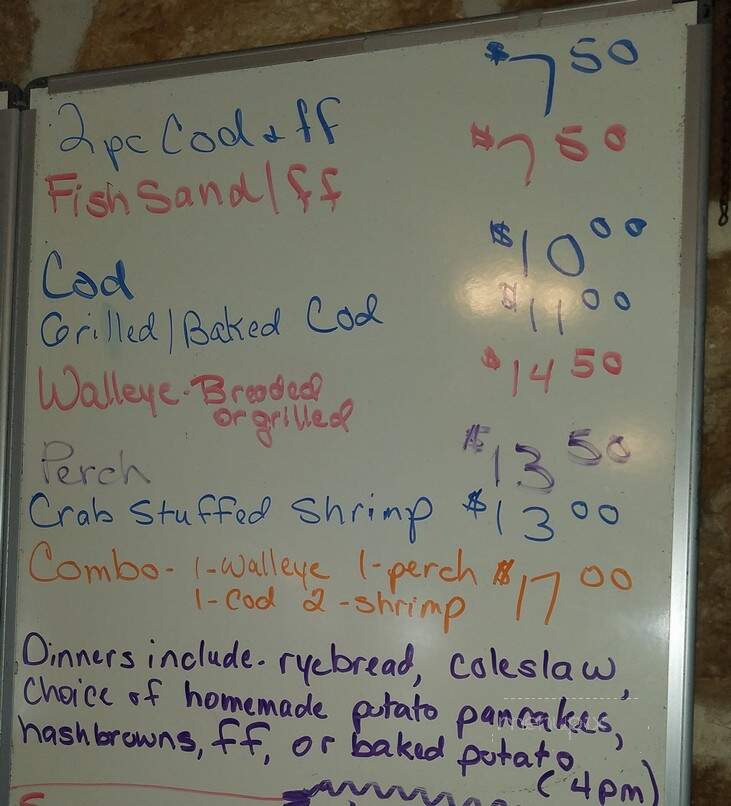 2pc Cod + ff $7 50
Fish Sand/ff $7 50
Cod $10 00
Grilled/Baked Cod $11 00
Walleye - Breaded $14 50
or grilled
Perch $13 50
Crab Stuffed Shrimp $13 00
Combo - 1-walleye 1-perch $17 00
1-Cod 2-shrimp
Dinners include - ryebread, coleslaw,
Choice of homemade potato pancakes,
hashbrowns, ff, or baked potato
(4pm)